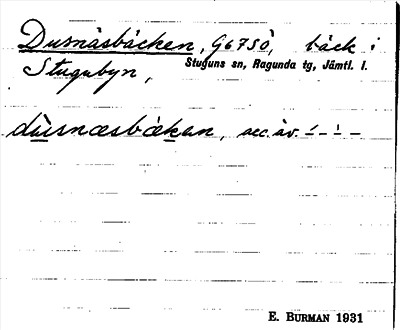 Dusnäsbäcken, G6750, bäck i
Stugubyn, Stuguns sn, Ragunda tg, Jämtl. l.
du̲̇snæsbæk̲en, acc. äv. -́ - -̀ -
E. BURMAN 1931